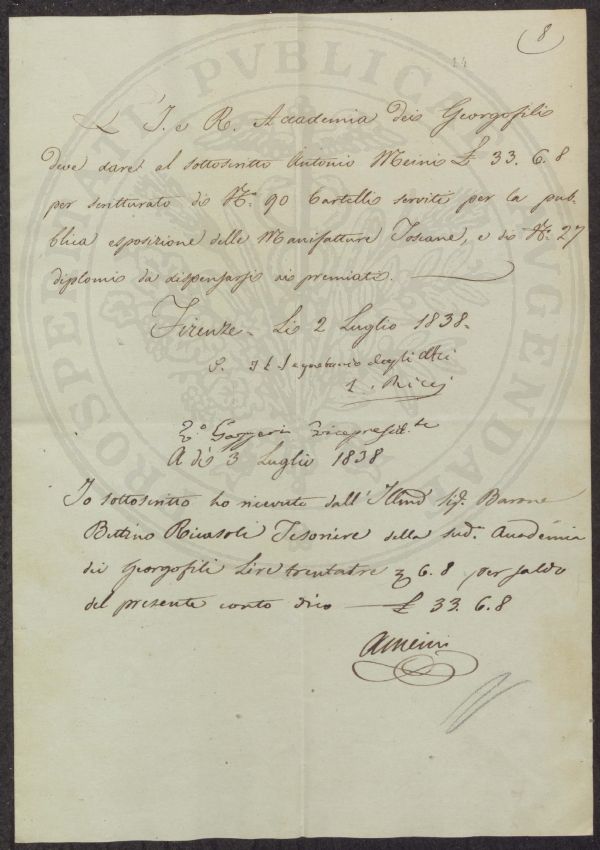 8
14
L'I. e R. Accademia dei Georgofili
deve dare al sottoscritto Antonio Meini £ 33. 6. 8
per scritturato di No. 90 Cartelli serviti per la pub-
blica esposizione delle Manifatture Toscane, e di No. 27
diplomi da dispensarsi ai premiati.
Firenze Li 2 Luglio 1838.
Il Segretario degli Atti
Ricci
Vo. Gazzeri Vicepresidte
A dì 3 Luglio 1838
Io sottoscritto ho ricevuto dall' Illmo Sig. Barone
Bettino Ricasoli Tesoriere della sud. Accademia
dei Georgofili Lire trentatre 6. 8 per saldo
del presente conto dico £ 33. 6. 8
AMeini
PROSPERITATI PVBLICAE AVGENDAE